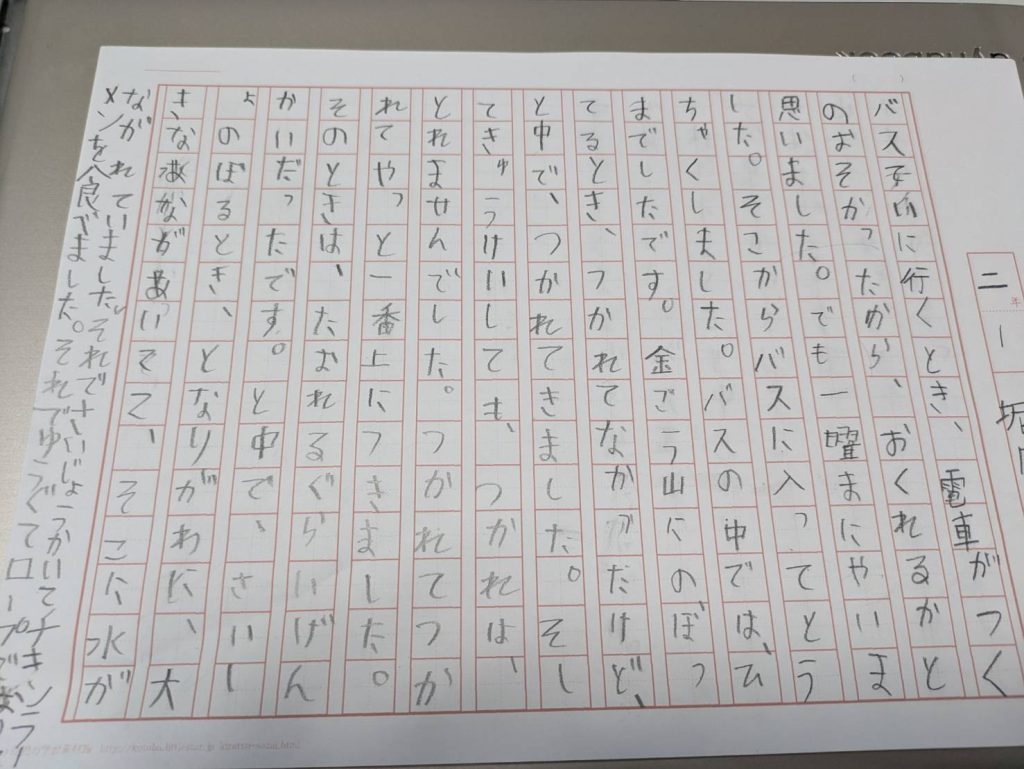 二年 1
バス子向に行くとき、電車がつく
のおそかったから、おくれるかと
思いました。でも一曜まにやいま
した。そさからバスに入ってとう
ちゃくしました。バスの中では、ひ
までしたです。金ごう山にのぼっ
てるとき、つかれてなかっだけど、
と中で、つかれてきました。そし
てきゅうけいしても、つかれは、
とれませんでした。つかれてつか
れてやっと一番上につきました。
そのときは、たおれるぐらいげん
かいだったです。と中で、さいし
ょのぼるとき、となりがわに、大
きな があいてて、そこに水が
ながれていました。それでさいじょうかいてチキンラー
メンを食べました。それでゆうぐてロープで